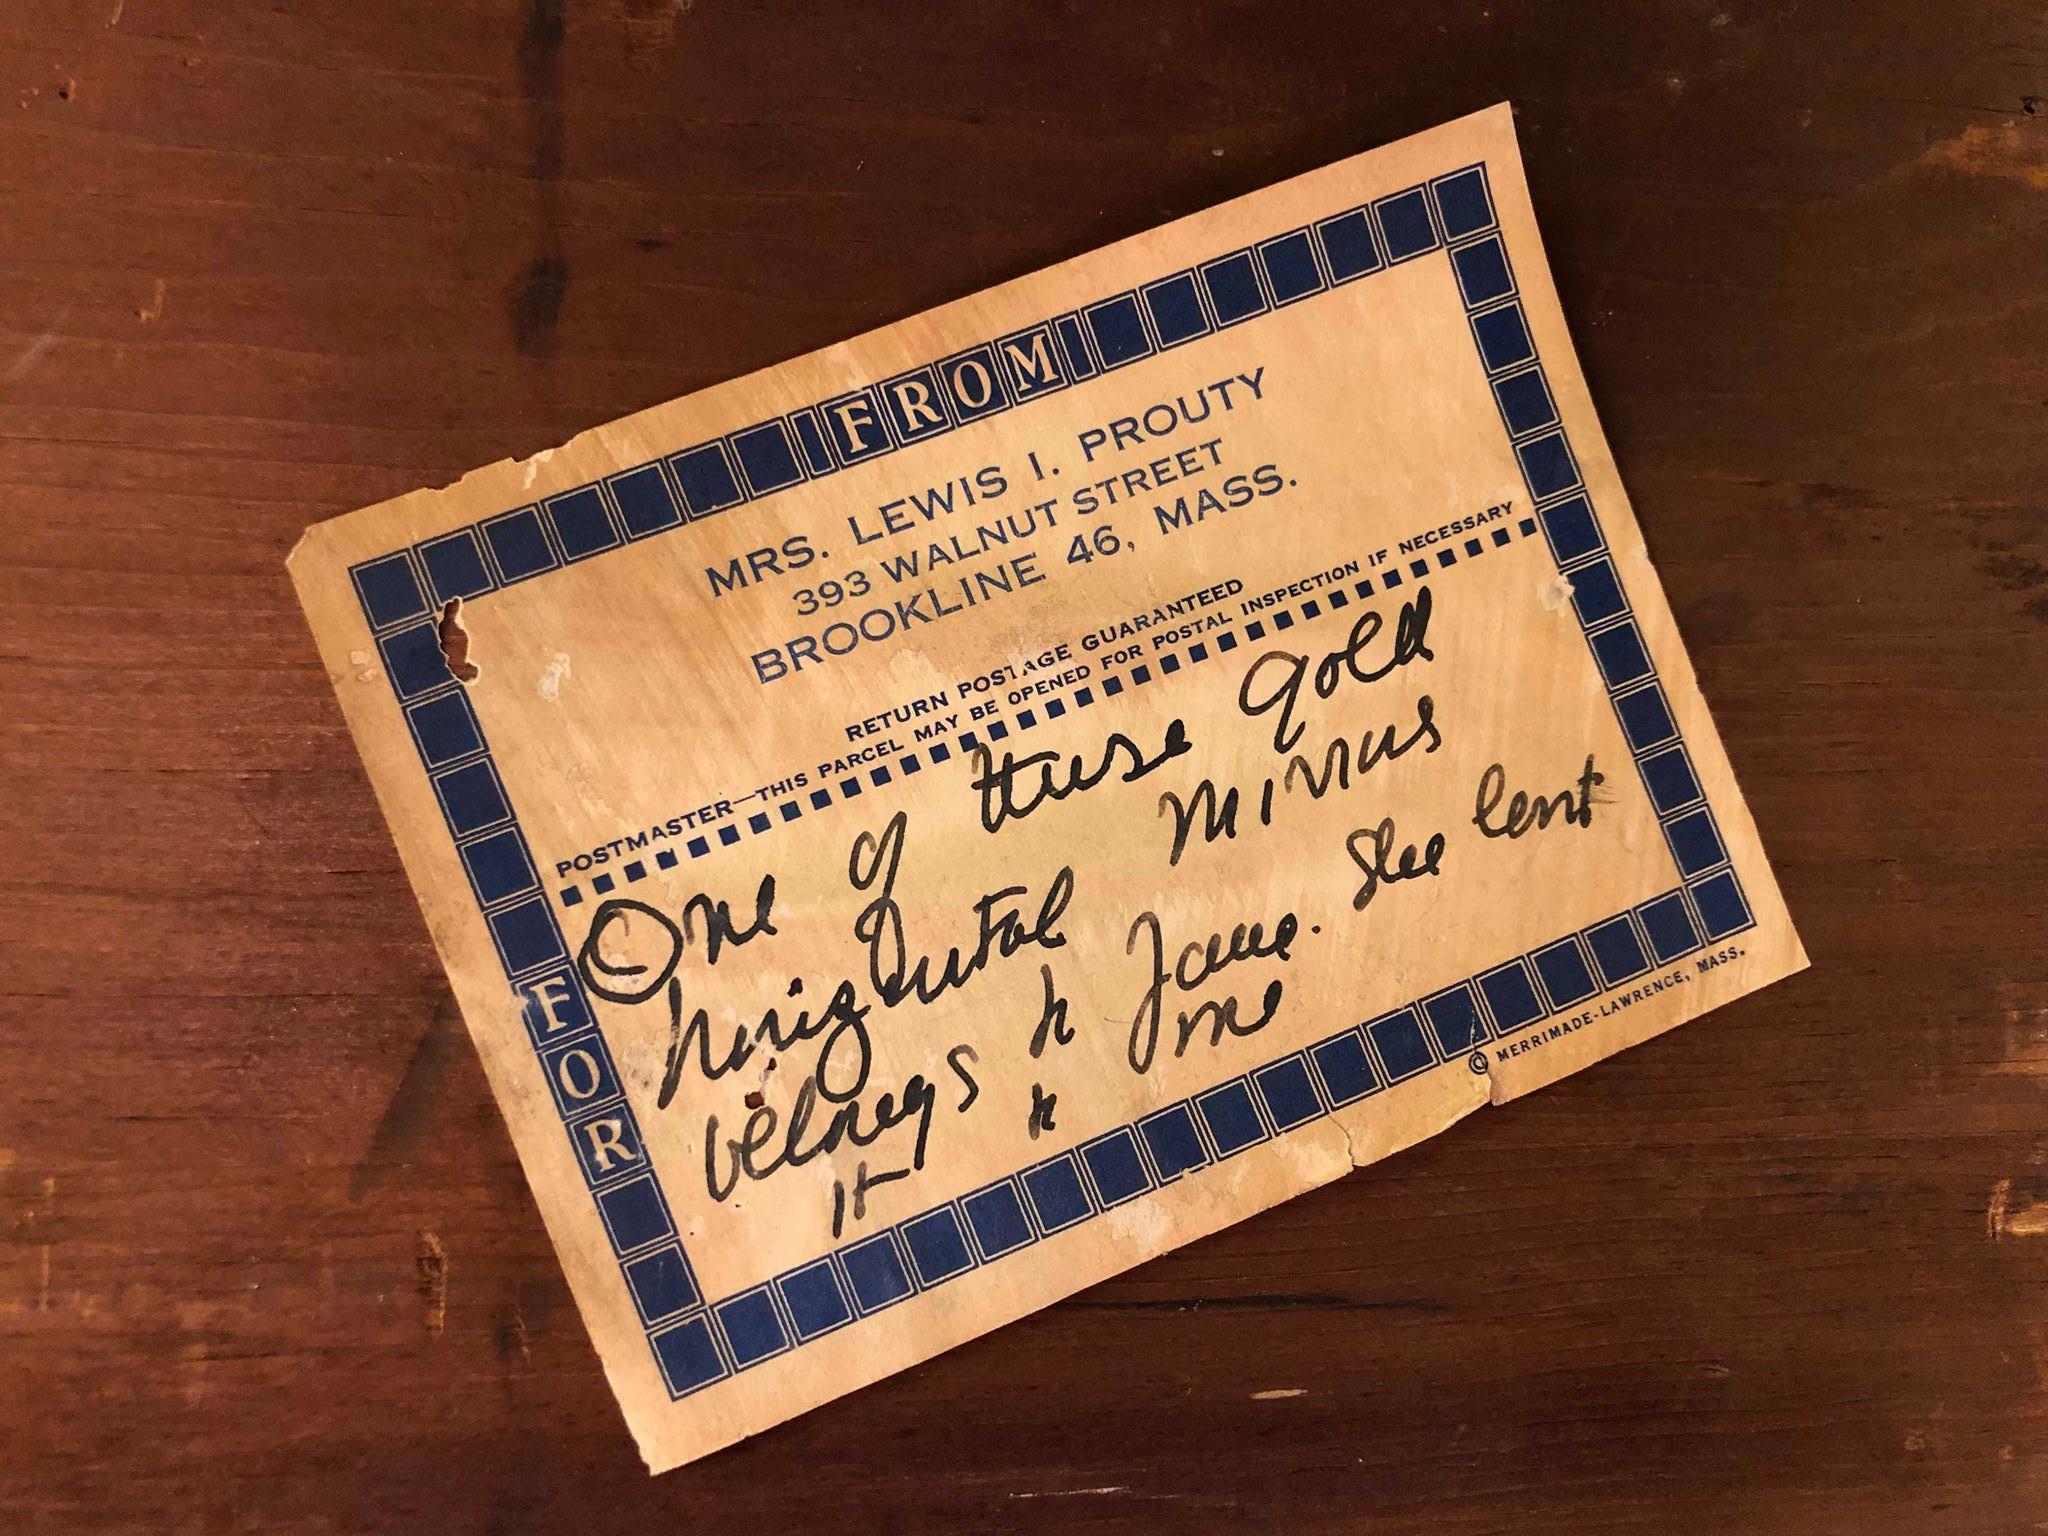 FROM
MRS. LEWIS I. PROUTY
393 WALNUT STREET
BROOKLINE 46, MASS.
RETURN POSTAGE GUARANTEED
POSTMASTER—THIS PARCEL MAY BE OPENED FOR POSTAL INSPECTION IF NECESSARY
FOR
One of these gold
horizontal mirrors
belongs to Jane. She lent
it to me
© MERRIMADE-LAWRENCE, MASS.